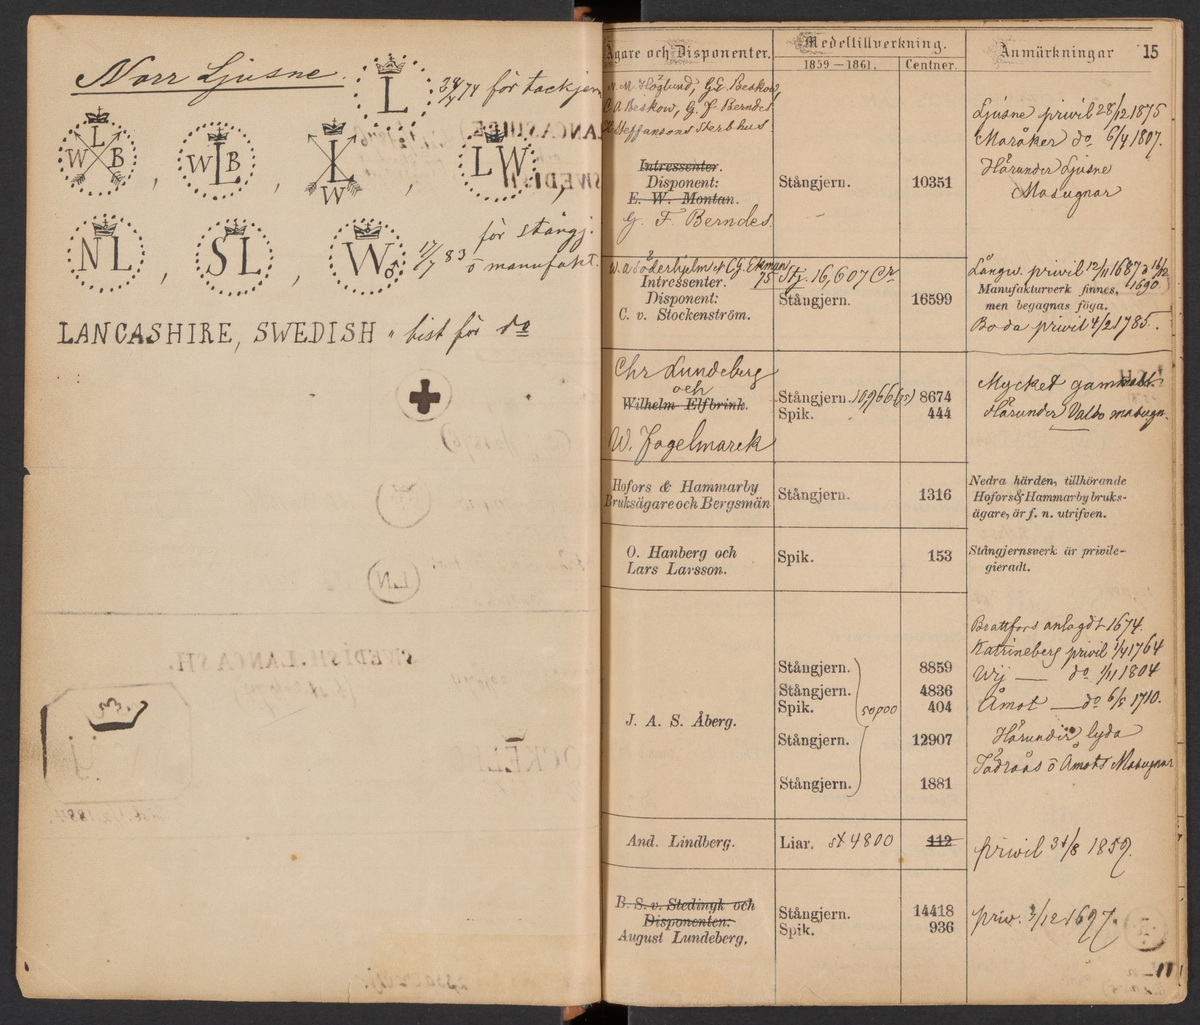 Norr Ljusne.
L
för tackjern
W L B, W L B, L W, L W,
NL, SL, W
17/7 83 för stångj. o manufakt.
LANCASHIRE, SWEDISH " bist för do
LN
SWEDISH. LANCASH.
Ägare och Disponenter.
Medeltillverkning.
1859—1861. Centner.
Anmärkningar
15
M. Höglund, G E Beskow,
C A Beskow, G. F. Berndes
Steffansons Sterbhus.
Intressenter.
Disponent:
E. W. Montan.
G. F. Berndes.
Stångjern. 10351
Ljusne privil 28/12 1875
Maråker do 6/4 1807.
Härunder Ljusne
Masugnar
W. A. Söderhjelm & C G. Ekman
Intressenter.
Disponent:
C. v. Stockenström.
75 Stj. 16,607 Ctr
Stångjern. 16599
Långv. privil 12/11 1687 & 16/12 1690
Manufakturverk finnes,
men begagnas föga.
Boda privil 4/2 1785.
Chr Lundeberg
och
Wilhelm Elfbrink.
W. Fogelmarck
Stångjern. 10966 (75) 8674
Spik. 444
Mycket gammalt
Härunder Valbo masugn.
Hofors & Hammarby
Bruksägare och Bergsmän
Stångjern. 1316
Nedra härden, tillhörande
Hofors & Hammarby bruks-
ägare, är f. n. utrifven.
O. Hanberg och
Lars Larsson.
Spik. 153
Stångjernsverk är privile-
gieradt.
J. A. S. Åberg.
Stångjern. 8859
Stångjern. 4836
Spik. 404
50000
Stångjern. 12907
Stångjern. 1881
Brattfors anlagdt 1674.
Katrineberg privil 1/4 1764
Wij — do 1/11 1804
Åmot — do 6/5 1710.
Härunder lyda
Jädraås o Åmots Masugnar
And. Lindberg.
Liar. st 4800 112
privil 31/8 1859.
B. S. v. Stedingk och
Disponenten.
August Lundeberg.
Stångjern. 14418
Spik. 936
priv. 3/12 1697.